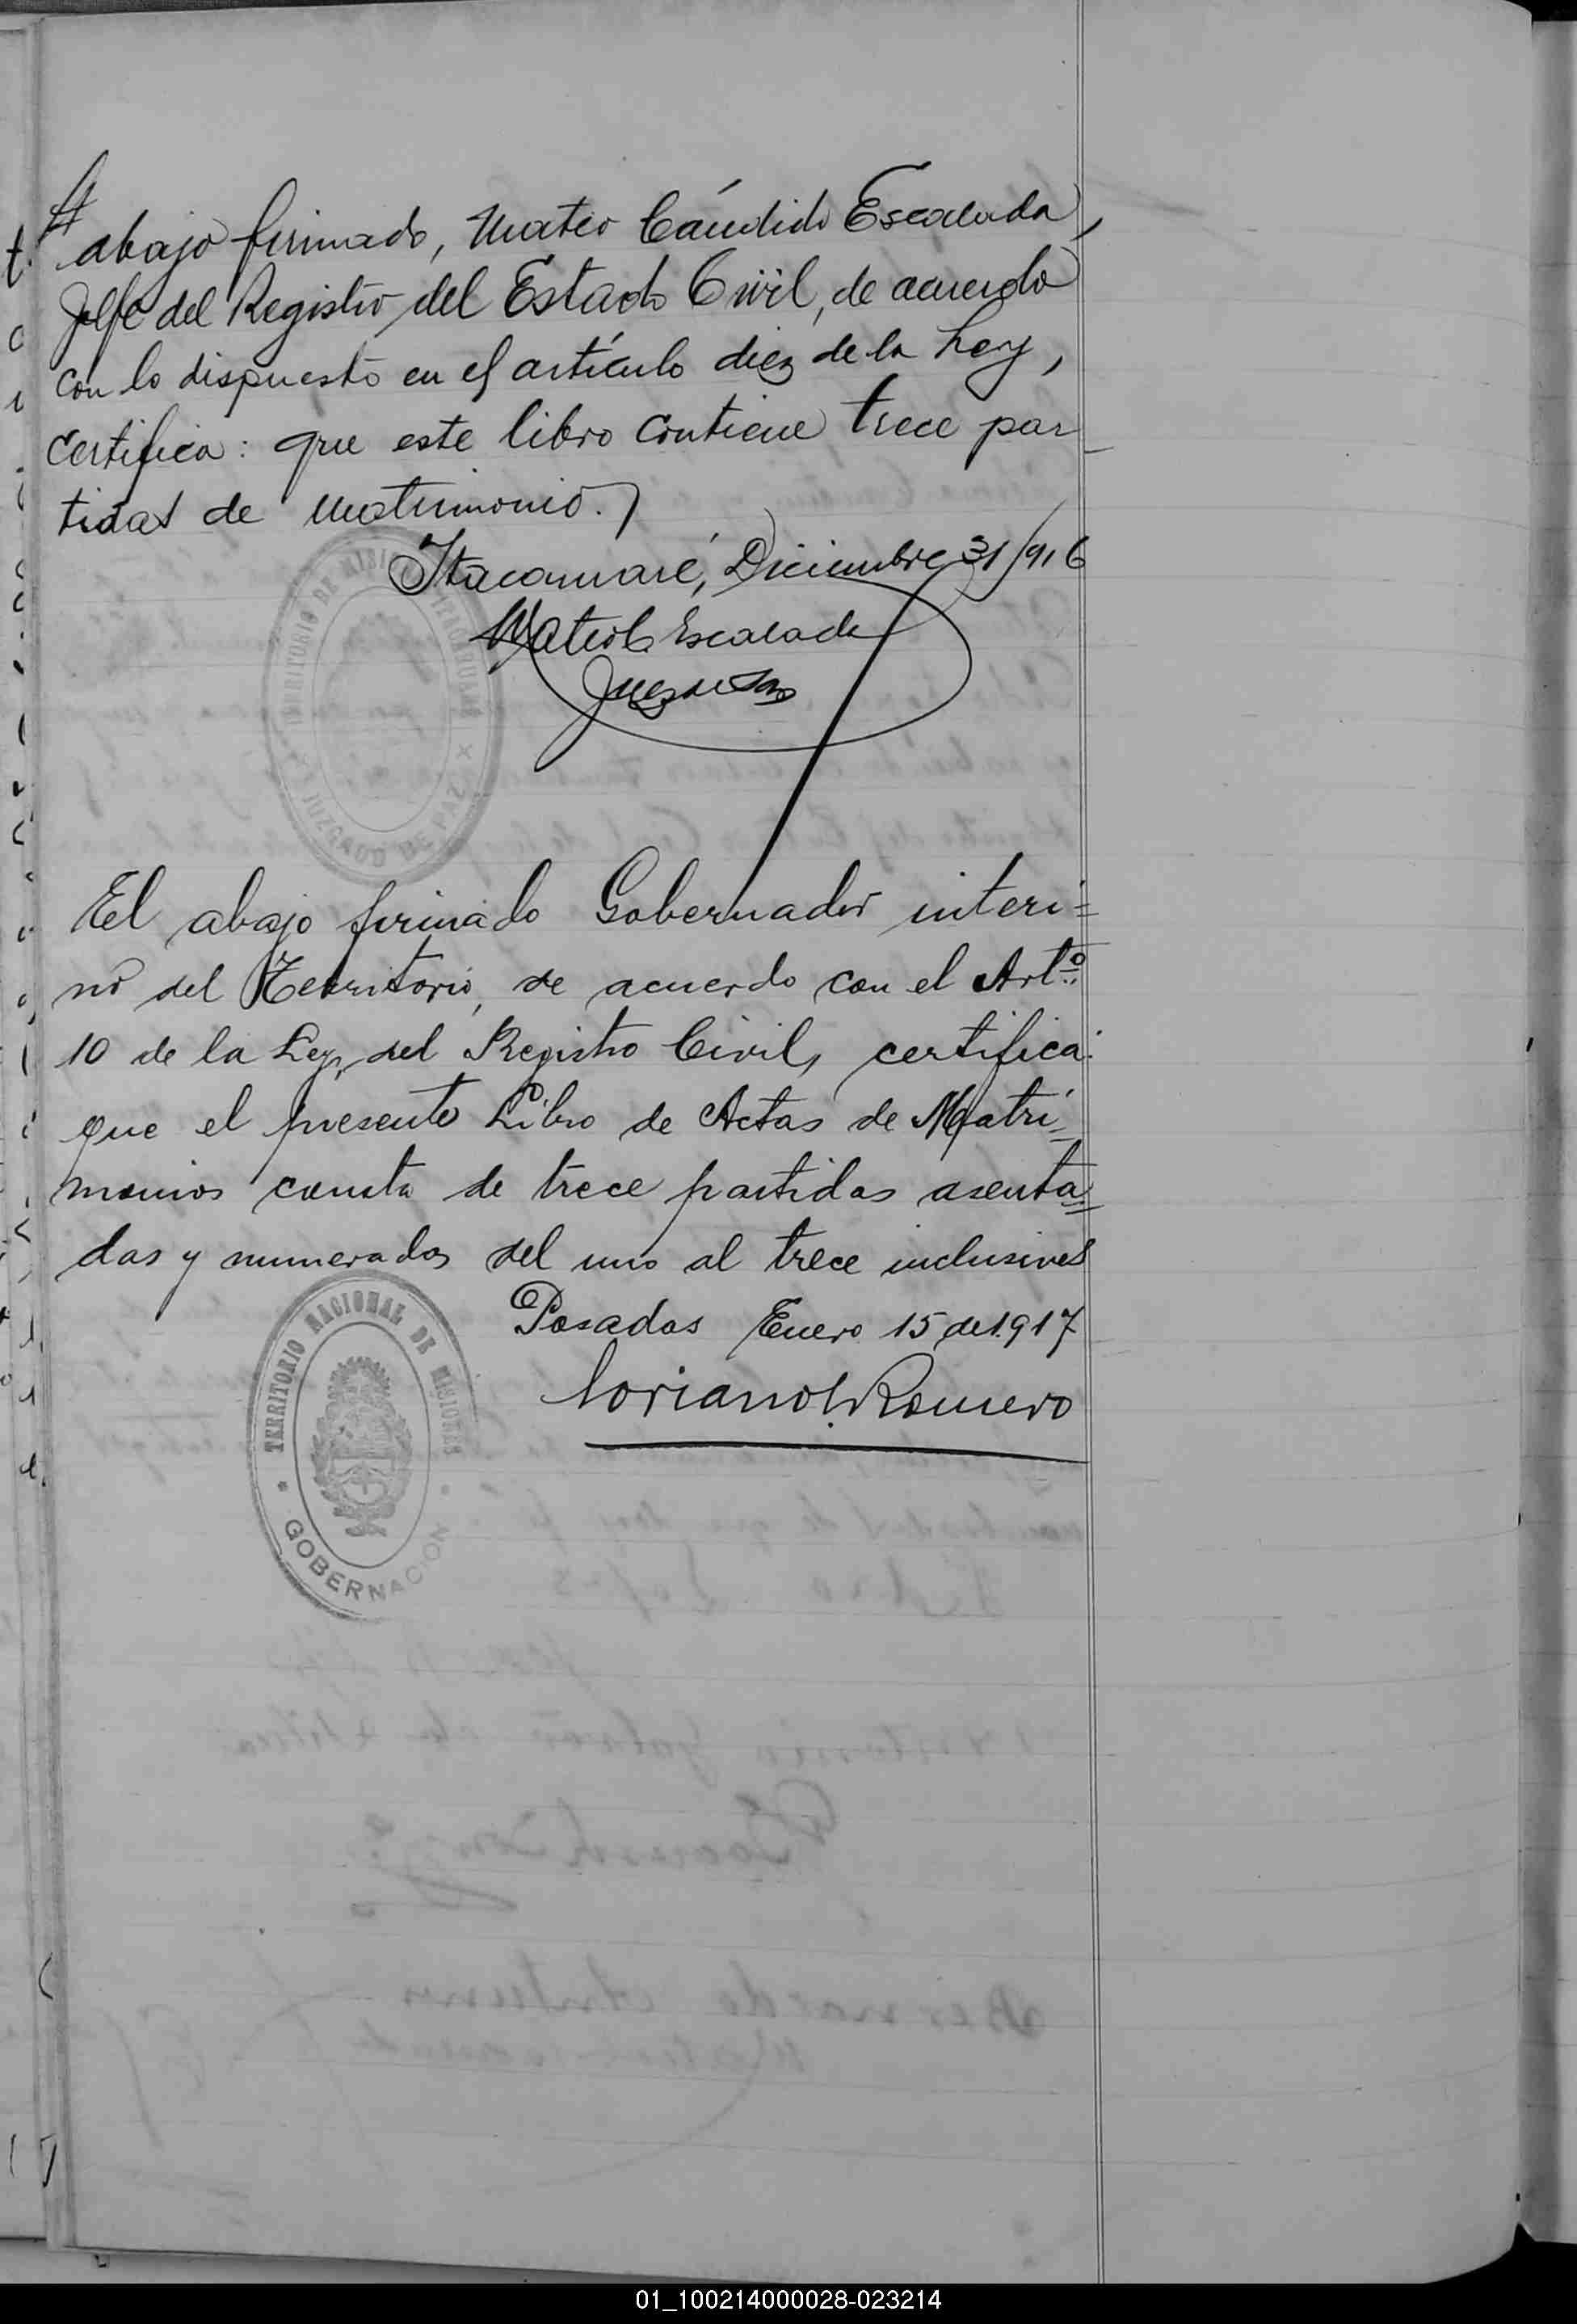 El abajo firmado, Mateo Cándido Escalada,
Jefe del Registro del Estado Civil, de acuerdo
con lo dispuesto en el artículo diez de la Ley,
certifica: que este libro contiene trece par
tidas de matrimonio.
Itacaruaré, Diciembre 31/916
Mateo C. Escalada
Juez de Paz
JUZGADO DE PAZ
El abajo firmado Gobernador interi=
no del Territorio, de acuerdo con el Artº
10 de la Ley, del Registro Civil, certifica:
que el presente Libro de Actas de Matri=
monios consta de trece partidas asenta=
das y numeradas del uno al trece inclusives
Posadas Enero 15 de 1.917
Coriano Romero
TERRITORIO NACIONAL DE MISIONES
GOBERNACION
01_100214000028-023214